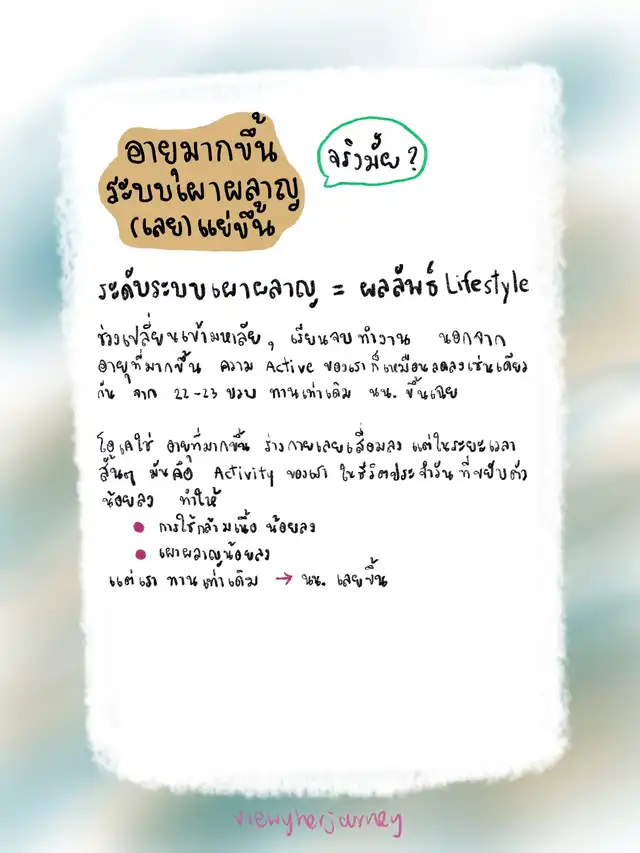 อายุมากขึ้น
ระบบเผาผลาญ
(เลย) แย่ขึ้น
จริงมั้ย ?
ระดับระบบเผาผลาญ = ผลลัพธ์ Lifestyle
ช่วงเปลี่ยนเข้ามหาลัย, เรียนจบทำงาน นอกจาก
อายุที่มากขึ้น ความ Active ของเราก็เหมือนลดลงเช่นเดียว
กัน จาก 22-23 ขวบ ทานเท่าเดิม นน. ขึ้นเฉย
โอเคใช่ อายุที่มากขึ้น ร่างกายเลยเสื่อมลง แต่ในระยะเวลา
สั้นๆ มันคือ Activity ของเรา ในชีวิตประจำวัน ที่ขยับตัว
น้อยลง ทำให้
• การใช้กล้ามเนื้อ น้อยลง
• เผาผลาญน้อยลง
แต่เรา ทานเท่าเดิม → นน. เลยขึ้น
viewyherjourney